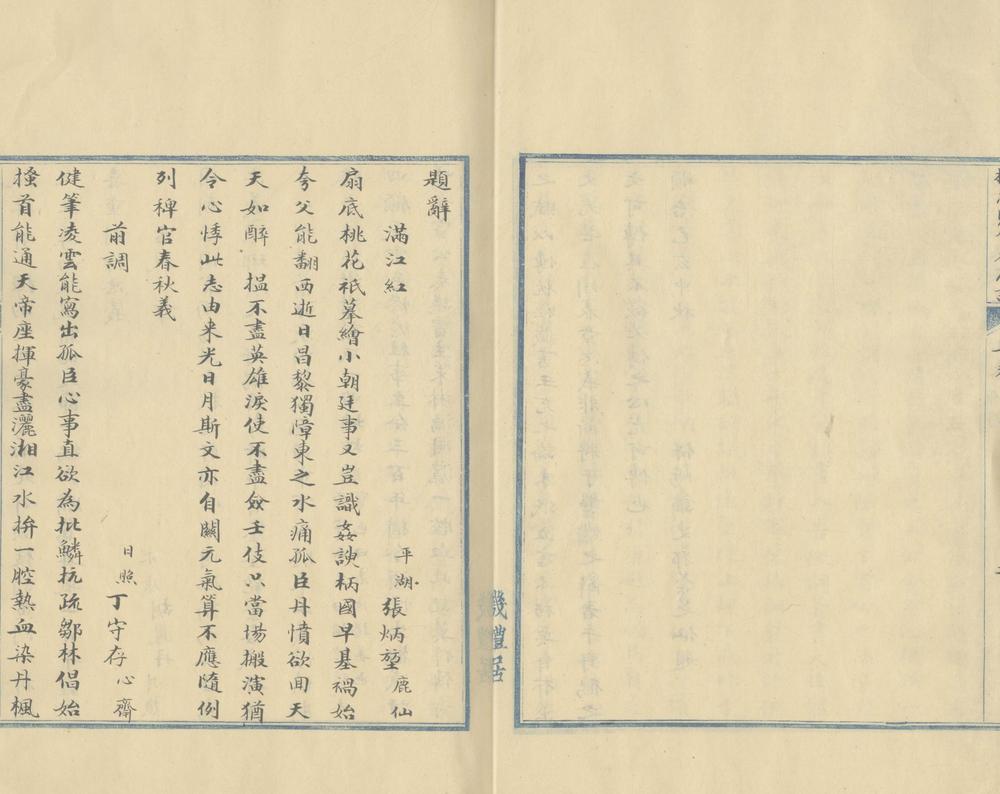 題辭
滿江紅　平湖張炳堃鹿仙
扇底桃花祇摹繪小朝廷事又豈識姦諛柄國早基禍始
夸父能翻西逝日昌黎獨障東之水痛孤臣丹憤欲聞天
天如醉　搵不盡英雄淚使不盡僉壬伎只當場搬演猶
令心悸此志由来光日月斯文亦自關元氣算不應隨例
列稗官春秋義
前調　日照丁守存心齋
健筆凌雲能寫出孤臣心事直欲為批鱗抗疏鄒林倡始
搔首能通天帝座揮豪盡灑湘江水拚一腔熱血染丹楓
幾禮居